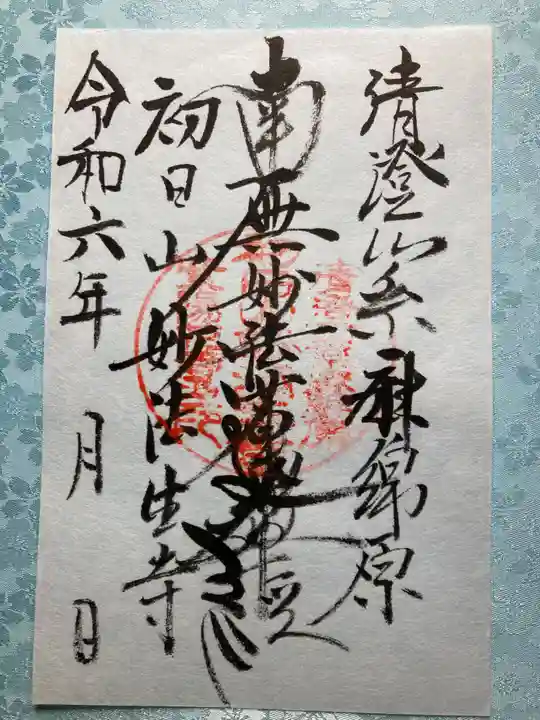 清澄山系麻綿原
南無妙法蓮華経
初日山妙法生寺
令和六年 月 日